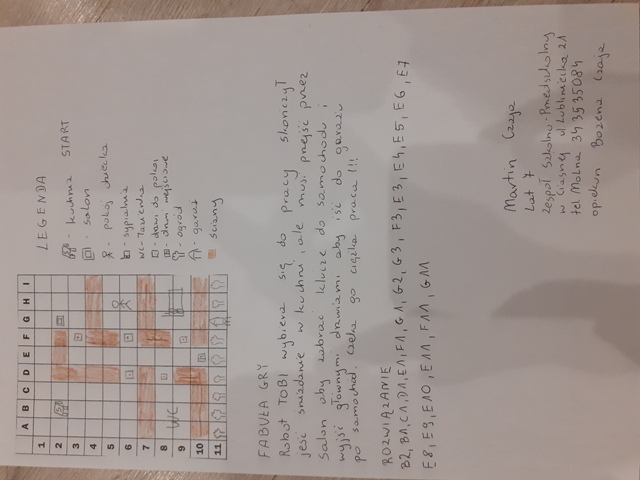 A B C D E F G H I
1
2
3
4
5
6
7
8
WC
9
10
11
LEGENDA
- kuchnia START
- salon
- pokój dziecka
- sypialnia
WC - Łazienka
- drzwi do pokoi
- drzwi wejściowe
- ogród
- garaż
- ściany
FABUŁA GRY
Robot TOBI wybiera się do pracy skończył
jeść śniadanie w kuchni, ale musi przejść przez
Salon aby zabrać klucze do samochodu i
wyjść głównymi drzwiami aby iść do garażu
po samochód. Czeka go ciężka praca !!!
ROZWIĄZANIE
B2, B1, C1, D1, E1, F1, G1, G2, G3, F3, E3, E4, E5, E6, E7
E8, E9, E10, E11, F11, G11
Martin Czaja
Lat 7
Zespół Szkolno-Przedszkolny
w Ciasnej ul. Lubliniecka 21
tel. 34 3535084
opiekun Bożena Czaja